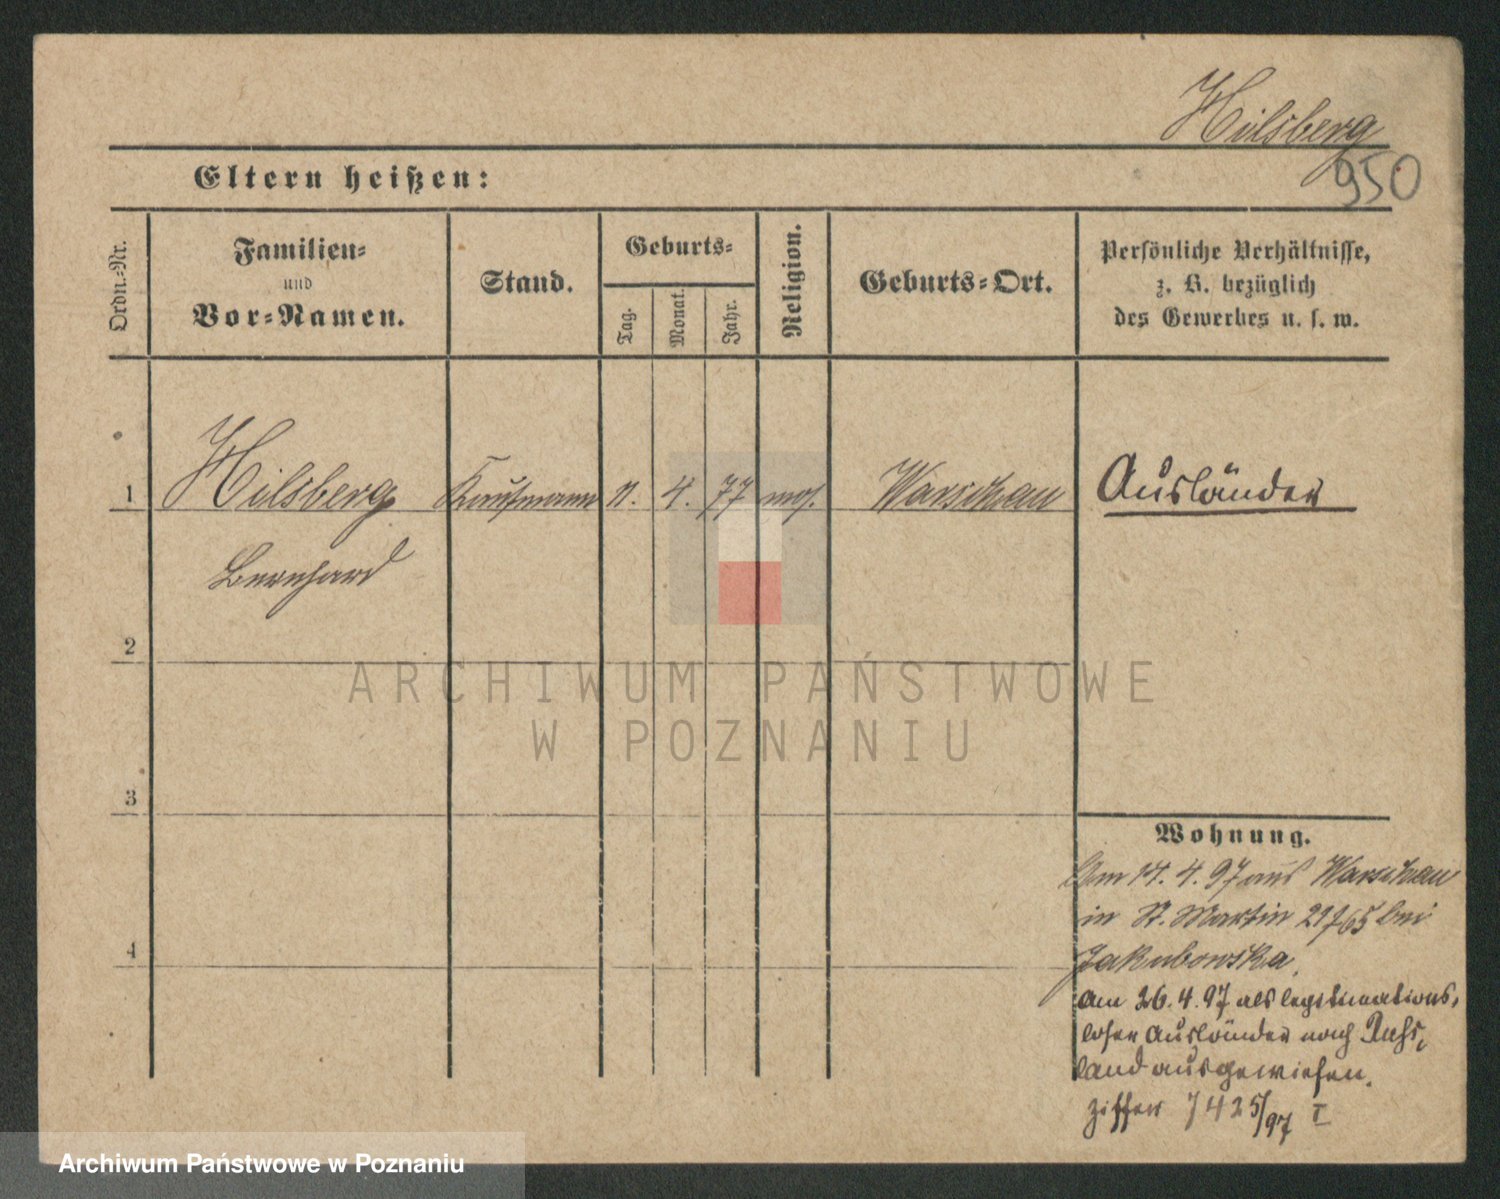 Hilsberg
950
Eltern heißen:
Ordn.-Nr.
Familien-
und
Vor-Namen.
Stand.
Geburts-
Tag.
Monat.
Jahr.
Religion.
Geburts-Ort.
Persönliche Verhältnisse,
z. B. bezüglich
des Gewerbes u. s. w.
1 Hilsberg Kaufmann 11. 4. 77 mos. Warschau Ausländer
Bernhard
2
ARCHIWUM PAŃSTWOWE
W POZNANIU
3
Wohnung.
Am 14. 4. 97 aus Warschau
in St. Martin bei
4
Jakubowska.
Am 26. 4. 97 als legitimations-
loser Ausländer nach Russ-
land ausgewiesen.
Ziffer 7425/97 I
Archiwum Państwowe w Poznaniu